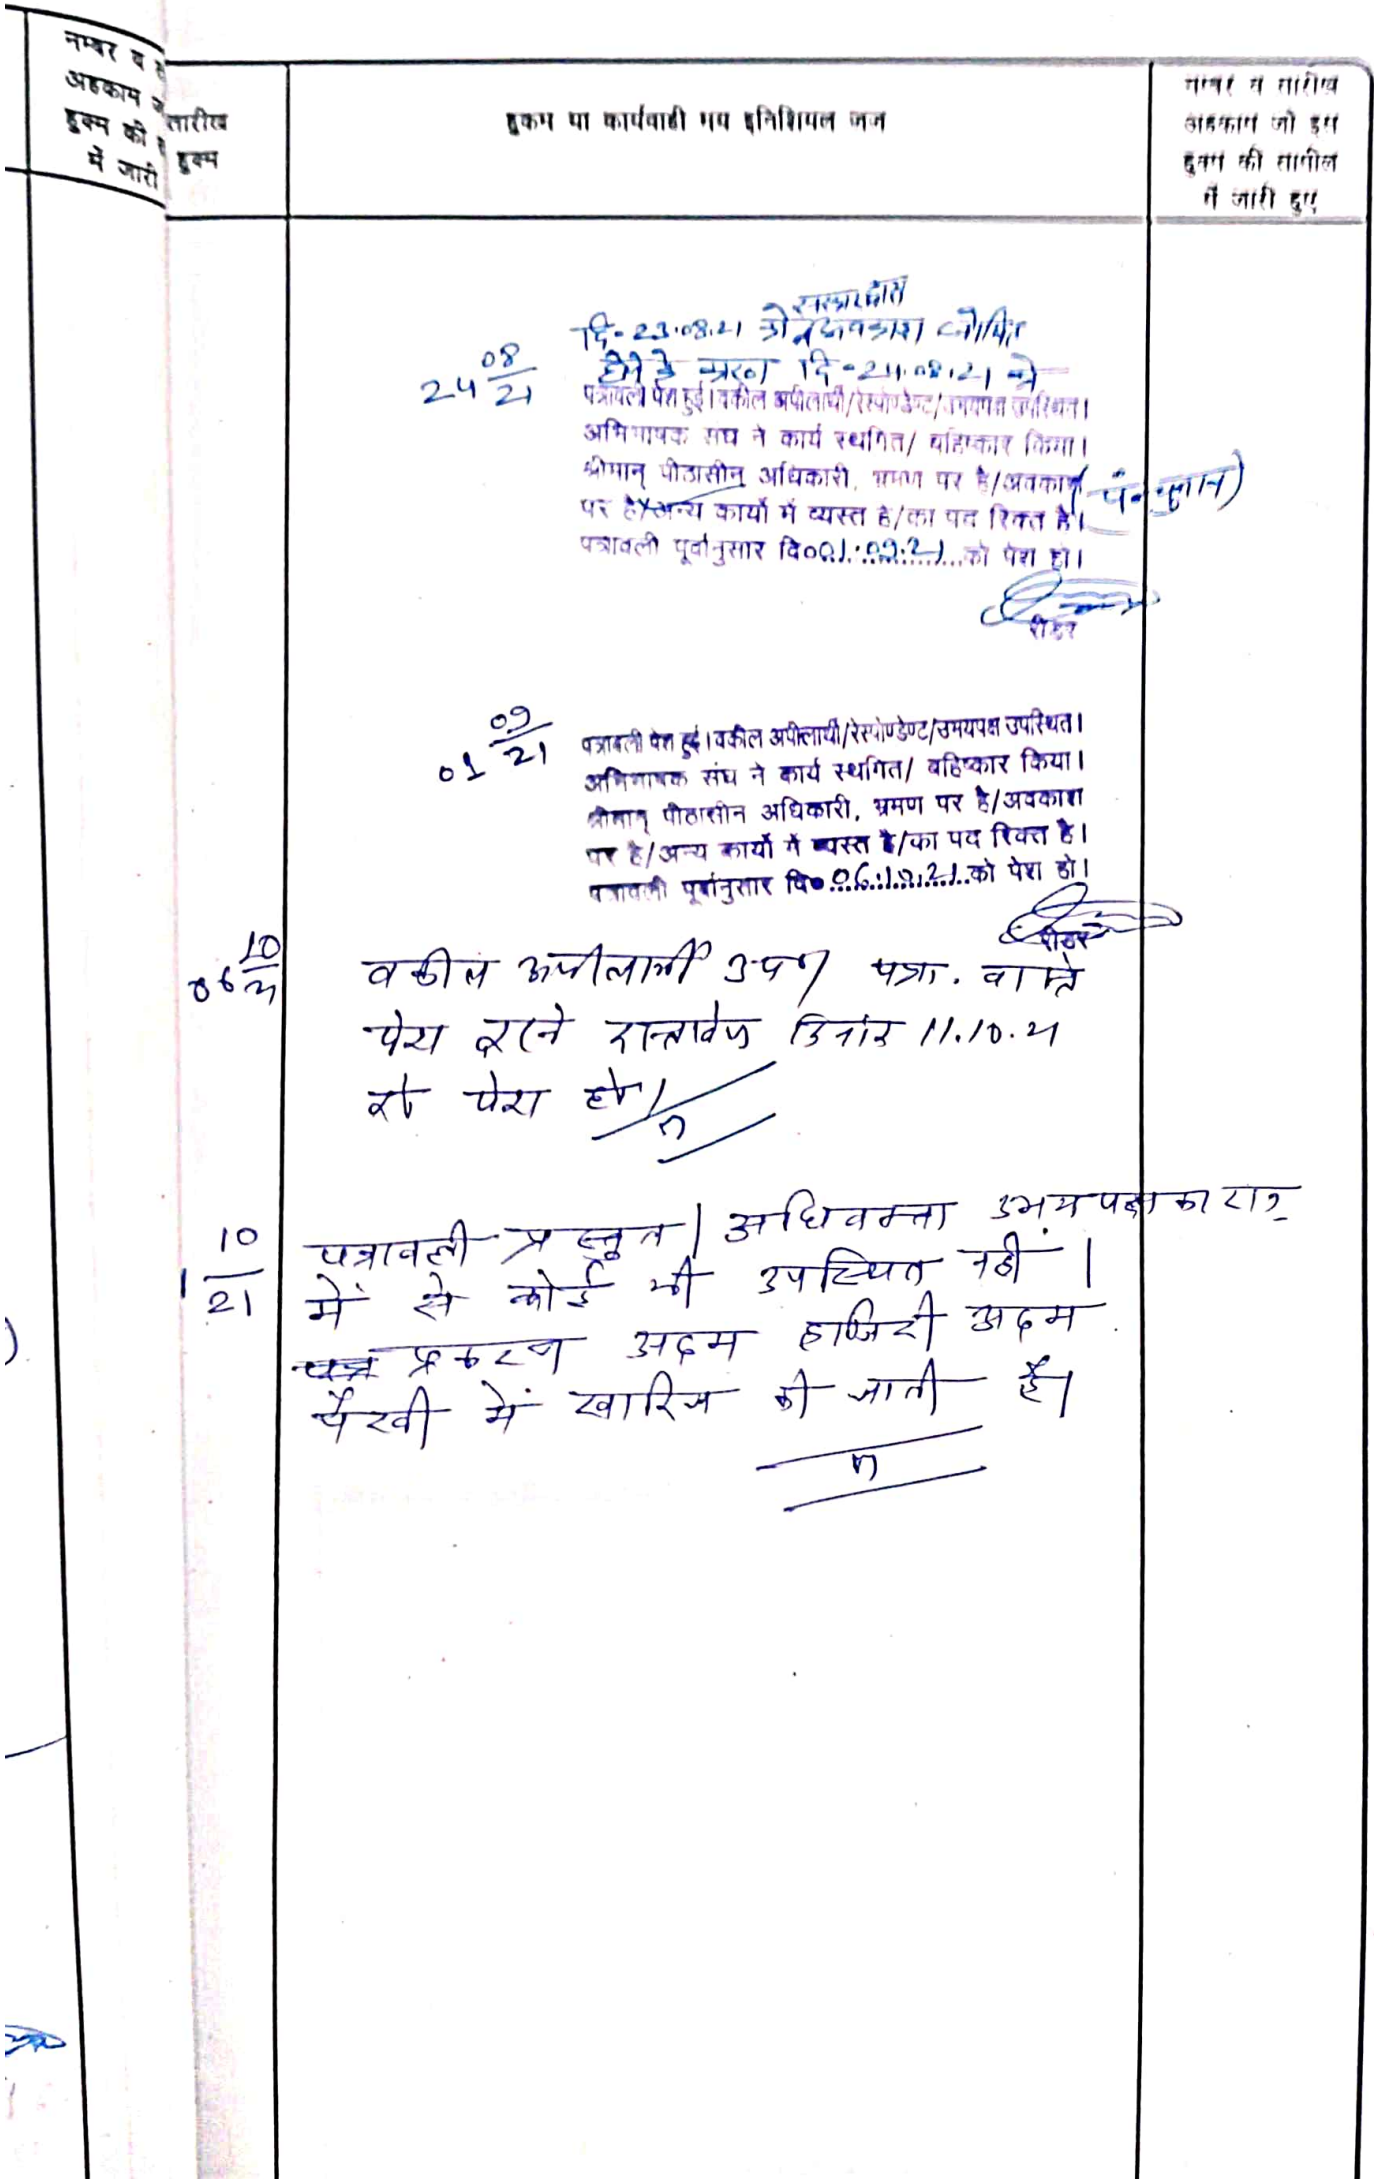 नम्बर व
अहकाम
हुक्म की
में जारी
तारीख
हुक्म
हुकम या कार्यवाही मय इनिशियल जज
नम्बर व तारीख
अहकाम जो इस
हुक्म की तामील
में जारी हुए
दि-23.08.21 को अवकाश घोषित
होने के कारण दि-24.08.21 को
24 08/21
पत्रावली पेश हुई। वकील अपीलार्थी/रेस्पोण्डेण्ट/उभयपक्ष उपस्थित।
अभिभाषक संघ ने कार्य स्थगित/ बहिष्कार किया।
श्रीमान् पीठासीन अधिकारी, भ्रमण पर है/अवकाश
पर है/अन्य कार्यो में व्यस्त है/का पद रिक्त है।
(पं. चुनाव)
पत्रावली पूर्वानुसार दि० 01.09.21 को पेश हो।
रीडर
01 09/21
पत्रावली पेश हुई। वकील अपीलार्थी/रेस्पोण्डेण्ट/उभयपक्ष उपस्थित।
अभिभाषक संघ ने कार्य स्थगित/ बहिष्कार किया।
श्रीमान् पीठासीन अधिकारी, भ्रमण पर है/अवकाश
पर है/अन्य कार्यो में व्यस्त है/का पद रिक्त है।
पत्रावली पूर्वानुसार दि० 06.10.21 को पेश हो।
रीडर
06 10/21
वकील अपीलार्थी उप० पत्रा. वास्ते
पेश करने दस्तावेज दिनांक 11.10.21
को पेश हो।
1 10/21
पत्रावली प्रस्तुत। अधिवक्ता उभयपक्षकारान
में से कोई भी उपस्थित नहीं।
प्रकरण अदम हाजिरी अदम
पैरवी में खारिज की जाती है।